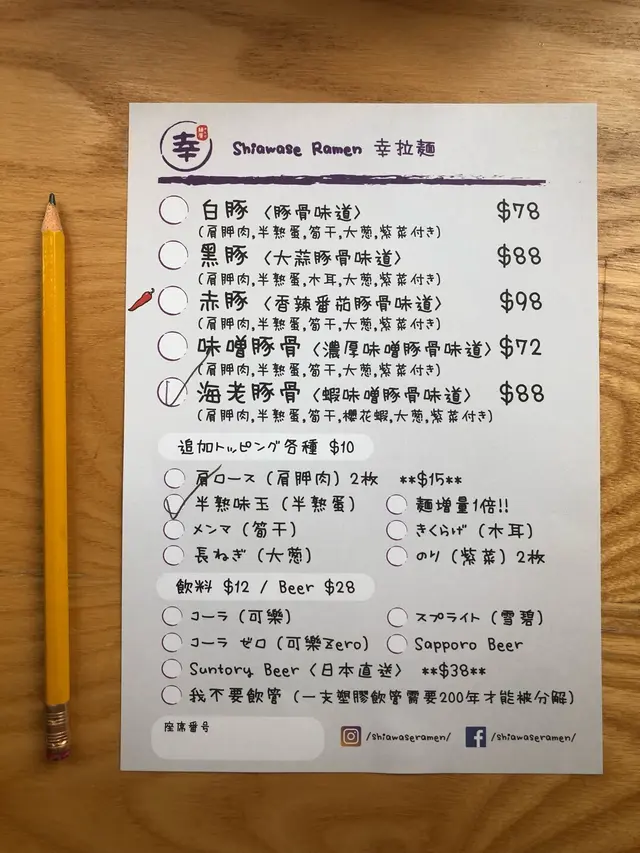 幸 Shiawase Ramen 幸拉麵
白豚〈豚骨味道〉 $78
(肩胛肉,半熟蛋,筍干,大葱,紫菜付き)
黑豚〈大蒜豚骨味道〉 $88
(肩胛肉,半熟蛋,木耳,大葱,紫菜付き)
赤豚〈香辣番茄豚骨味道〉 $98
(肩胛肉,半熟蛋,筍干,大葱,紫菜付き)
味噌豚骨〈濃厚味噌豚骨味道〉 $72
(肩胛肉,半熟蛋,筍干,大葱,紫菜付き)
海老豚骨〈蝦味噌豚骨味道〉 $88
(肩胛肉,半熟蛋,筍干,櫻花蝦,大葱,紫菜付き)
追加トッピング各種 $10
肩ロース(肩胛肉)2枚 **$15**
半熟味玉(半熟蛋) 麵增量1倍!!
メンマ(筍干) きくらげ(木耳)
長ねぎ(大葱) のり(紫菜)2枚
飲料 $12 / Beer $28
コーラ(可樂) スプライト(雪碧)
コーラ ゼロ(可樂Zero) Sapporo Beer
Suntory Beer〈日本直送〉 **$38**
我不要飲管(一支塑膠飲管需要200年才能被分解)
座席番号 /shiawaseramen/ /shiawaseramen/